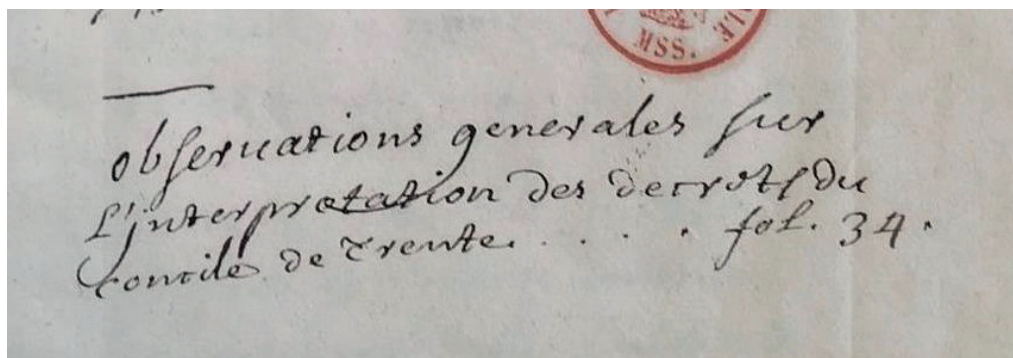 MSS.
observations generales sur
L'interpretation des decrets du
Concile de Trente. . . . . fol. 34.